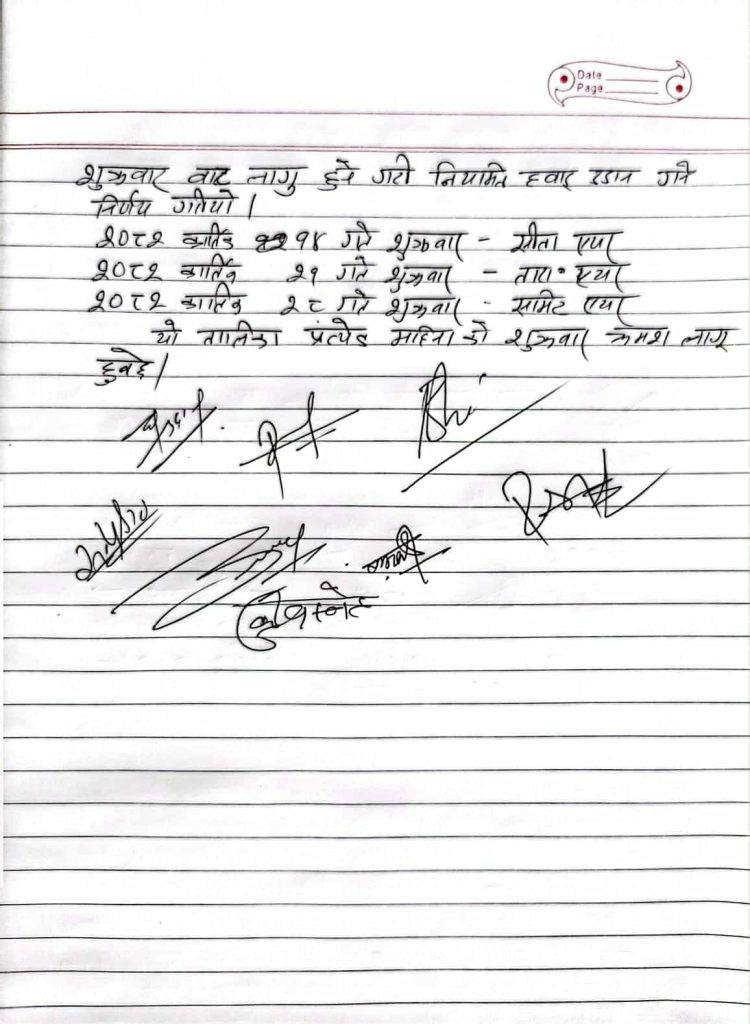 Date
Page
शुक्रवार बाट लागु हुने गरी नियमित हवाइ उडान गर्ने
निर्णय गरियो।
२०८२ कार्तिक १४ गते शुक्रवार - सीता एयर
२०८२ कार्तिक २१ गते शुक्रवार - तारा एयर
२०८२ कार्तिक २८ गते शुक्रवार - समिट एयर
यो तालिका प्रत्येक महिना को शुक्रवार क्रमश लागू
हुनेछ।